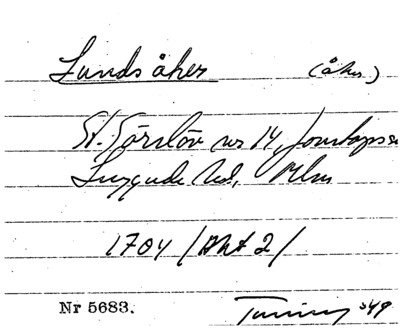 Lundsåker (åker)
St. Torslöv nr 14, Jonstorps sn
Luggude hd, Mlm
1704 (Akt 2)
Nr 5683. Tuning '49